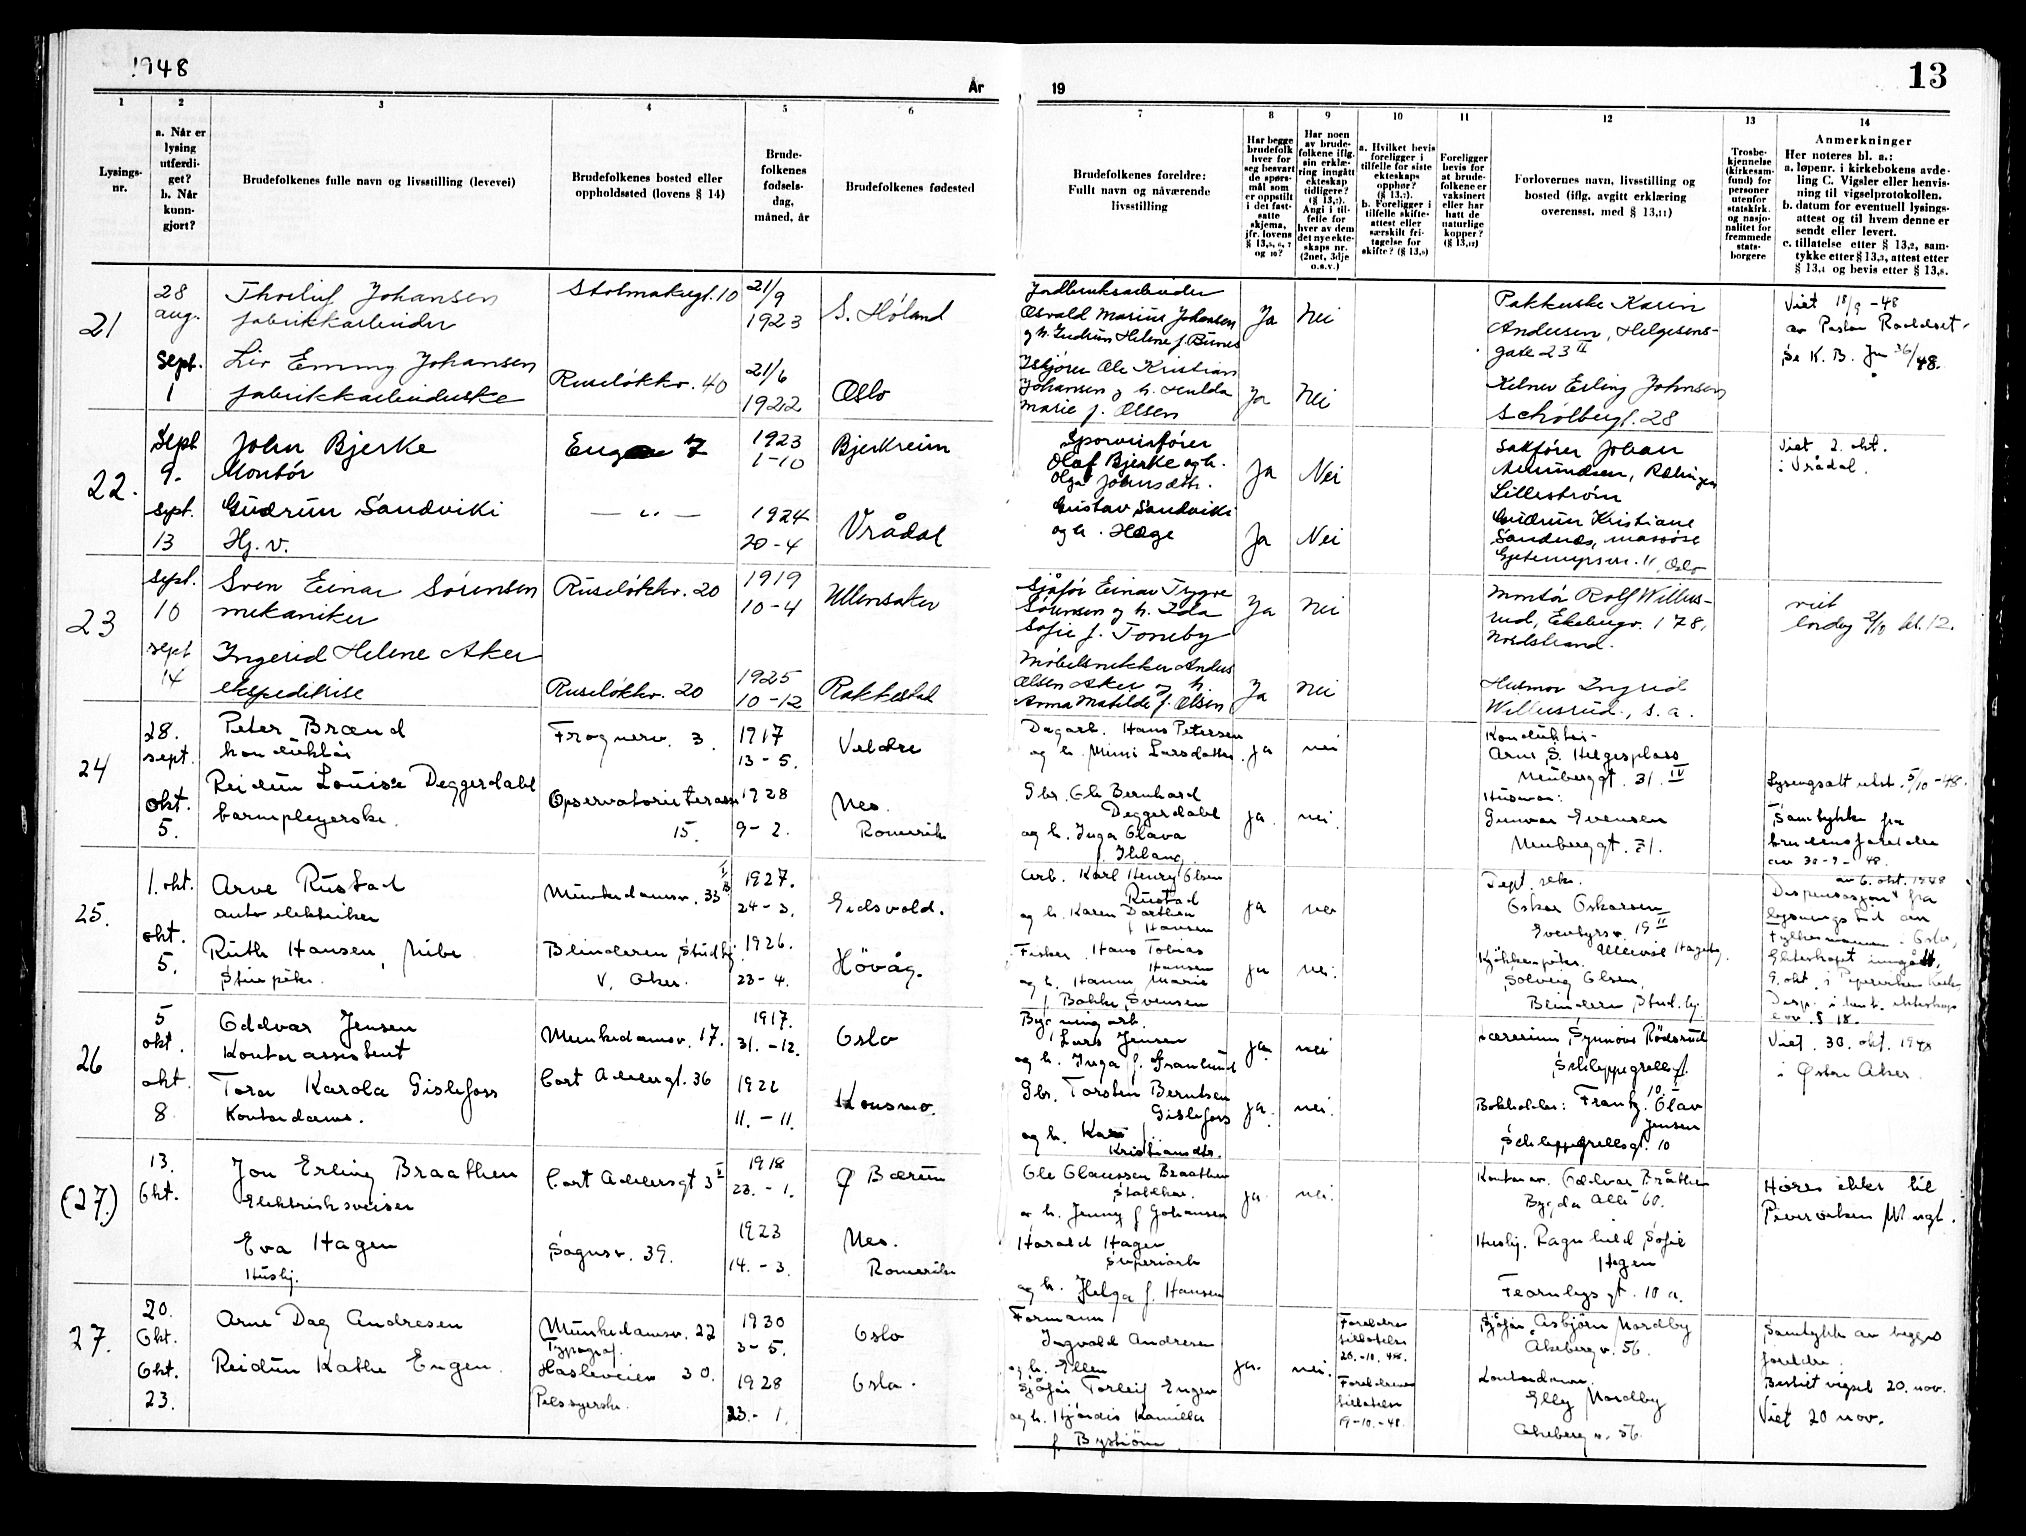 1948
År
19
13
1 2 3 4 5 6 7 8 9 10 11 12 13 14
Lysings-
nr.
a. Når er
lysing
utferdi-
get?
b. Når
kunn-
gjort?
Brudefolkenes fulle navn og livsstilling (levevei)
Brudefolkenes bosted eller
oppholdssted (lovens § 14)
Brude-
folkenes
fødsels-
dag,
måned, år
Brudefolkenes fødested
Brudefolkenes foreldre:
Fullt navn og nåværende
livsstilling
Har begge
brudefolk
hver for
seg besvart
de spørs-
mål som
er oppstilt
i det fast-
satte
skjema,
jfr. lovens
Har noen
av brude-
folkene iflg.
sin erklæ-
ring inngått
ekteskap
tidligere?
Angi i til-
felle for
hver av dem
det nye ekte-
skaps nr.
(2net, 3dje
o.s.v.)
a. Hvilket bevis
foreligger i
tilfelle for siste
ekteskaps
opphør?
b. Foreligger i
tilfelle skifte-
attest eller
særskilt fri-
tagelse for
Foreligger
bevis for
at brude-
folkene er
vaksinert
eller har
hatt de
naturlige
kopper?
Forlovernes navn, livsstilling og
bosted (iflg. avgitt erklæring
overensst. med § 13,11)
Trosbe-
kjennelse
(kirkesam-
fund) for
personer
utenfor
statskirk.
og nasjo-
nalitet for
fremmede
stats-
borgere
Anmerkninger
Her noteres bl. a.:
a. løpenr. i kirkebokens avde-
ling C. Vigsler eller henvis-
ning til vigselprotokollen.
b. datum for eventuell lysings-
attest og til hvem denne er
sendt eller levert.
c. tillatelse etter § 13,2, sam-
tykke etter § 13,3, attest etter
21
28
aug.
Sept.
1
Thorleif Johansen
fabrikkarbeider
21/9
1923
S. Høland
Jordbruksarbeider
Osvald Marius Johansen
Ja Nei
Andersen, Helgesens-
gate 23 II
Viet 18/9 - 48
Liv Emmy Johansen
fabrikkarbeiderske
Ruseløkkv. 40
21/6
1922
Oslo
Ole Kristian
Johansen og h. Hulda
Marie f. Olsen
Ja Nei
Kelner Erling Johnsen
22.
Sept
9.
sept.
13
John Bjerke
Montør
1923
1-10
Bjerkreim
Olaf Bjerke og h.
Ja Nei
Lillestrøm
Viet 2. okt.
i Vrådal.
Gudrun Sandviki
Hj. v.
1924
20-4
Vrådal
Gustav Sandviki
og h. Hæge
Ja Nei
Gudrun Kristiane
Sandnes, massøse
23
sept.
10
sept
14
Sven Einar Sørensen
mekaniker
Ruseløkkv. 20
1919
10-4
Ullensaker
Sjåfør Einar Trygve
Sørensen og h. Ida
Sofie f. Toneby
Ja Nei
Montør Rolf Willus-
rud, Ekebergv. 178,
Nordstrand.
viet
lørdag 2/10 kl. 12.
Ingerid Helene Aker
ekspeditrise
Ruseløkkv. 20
1925
10-12
Rakkestad
Møbelsnekker Anders
Olsen Aker og h.
Anna Matilde f. Olsen
Ja Nei
Husmor Ingrid
Willusrud, s. a.
24
28.
sept.
okt.
5.
Peter Brænd
konduktør
Frognerv. 3.
1917
13-5.
Veldre
Dagarb. Hans Petersen
og h. Mimi Larsdatter
ja nei
Konduktør
Arne S. Helgesplass
Neuberggt. 31. IV
Reidun Louise Deggerdahl
barnepleyerske.
Opservatorieterasse
15.
1928
9-2.
Nes.
Romerik
Gbr. Ole Bernhard
Deggerdahl
og h. Inga Olava
ja. nei.
Husmor:
Gunvor Evensen
Neuberggt. 31.
Lysingsatt utst. 5/10-48.
Samtykke fra
brudens foreldre
av 30-9-48.
25.
1. okt.
okt.
5.
Arve Rustad
auto elektriker
Munkedamsv. 33
1927.
24-3.
Eidsvold.
Arb. Karl Henry Olsen
Rustad
og h. Karen Dorthea
f Hansen
ja nei
Dept. sekr.
Oskar Oskarsen
av 6. okt. 1948
Dispensasjon fra
lysningstid av
fylkesmannen i Oslo,
Ekteskapet inngått,
Ruth Hansen,
Blinderen Studby
V. Aker.
1926.
23-4.
Høvåg.
Fisker Hans Tobias
Hansen
og h. Hanna Marie
f Bakke Svensen
ja nei.
Solveig Olsen,
Blindern, Stud. by.
26
5
okt.
okt
8.
Oddvar Jensen
Kontorassistent
Munkedamsv. 17.
1917.
31.-12.
Oslo
Bygningarb.
Lars Jensen
og h. Inga f. Granlund
ja. nei
Synnøve Rødsrud
Schleppegrellsgt.
10.
Viet 30. okt. 1948
i Østre Aker.
Tora Karola Gislefoss
Kontordame.
Cort Adelersgt. 36
11.-11.
Konsmo.
Gbr. Torsten Berntsen
Gislefoss
og h.
Kristiansdtr.
ja. nei.
Bokholder: Frantz Olav
Jensen
Schleppegrellsgt. 10
(27.)
13.
Okt.
Jon Erling Braathen
Elektrisksveiser
Cort Adelersgt 3
1918
23.-1.
Ø Bærum
Ole Olaussen Braathen
og h. Jenny f Johansen
ja. nei.
Oddvar Bråthen
Bygdø Allé 60.
Høres ikke til
Pipervirken
Eva Hagen
Husbj.
Sognsv. 39.
1923
14.-3.
Nes.
Romerik
Harald Hagen
og h. Helga f. Hansen
Husbj. Ragnhild Sofie
Hagen
Fearnleys gt. 10 a.
27.
20.
Okt.
Okt.
23.
Arne Dag Andresen
Munkedamsv. 22
Typograf.
1930
3-5.
Oslo
Formann
Ingvald Andresen
og h. Ellen
ja. nei.
Foreldre
tillatelse
20.-10.48.
Sjåfør Asbjørn Nordby
Åkebergv. 56.
Samtykke av begges
foreldre.
Bestilt vigsel 20. nov.
Viet 20 nov.
Reidun Kathe Engen.
Hasleveien 30.
Pelssyerske.
1928
23.-1.
Oslo.
Sjåfør Torleif Engen
og h. Hjørdis Kamilla
f Bystrøm
Foreldrenes
tillatelse
19-10.-48.
Kontordame.
Elly Nordby
Åkeberg v. 56.